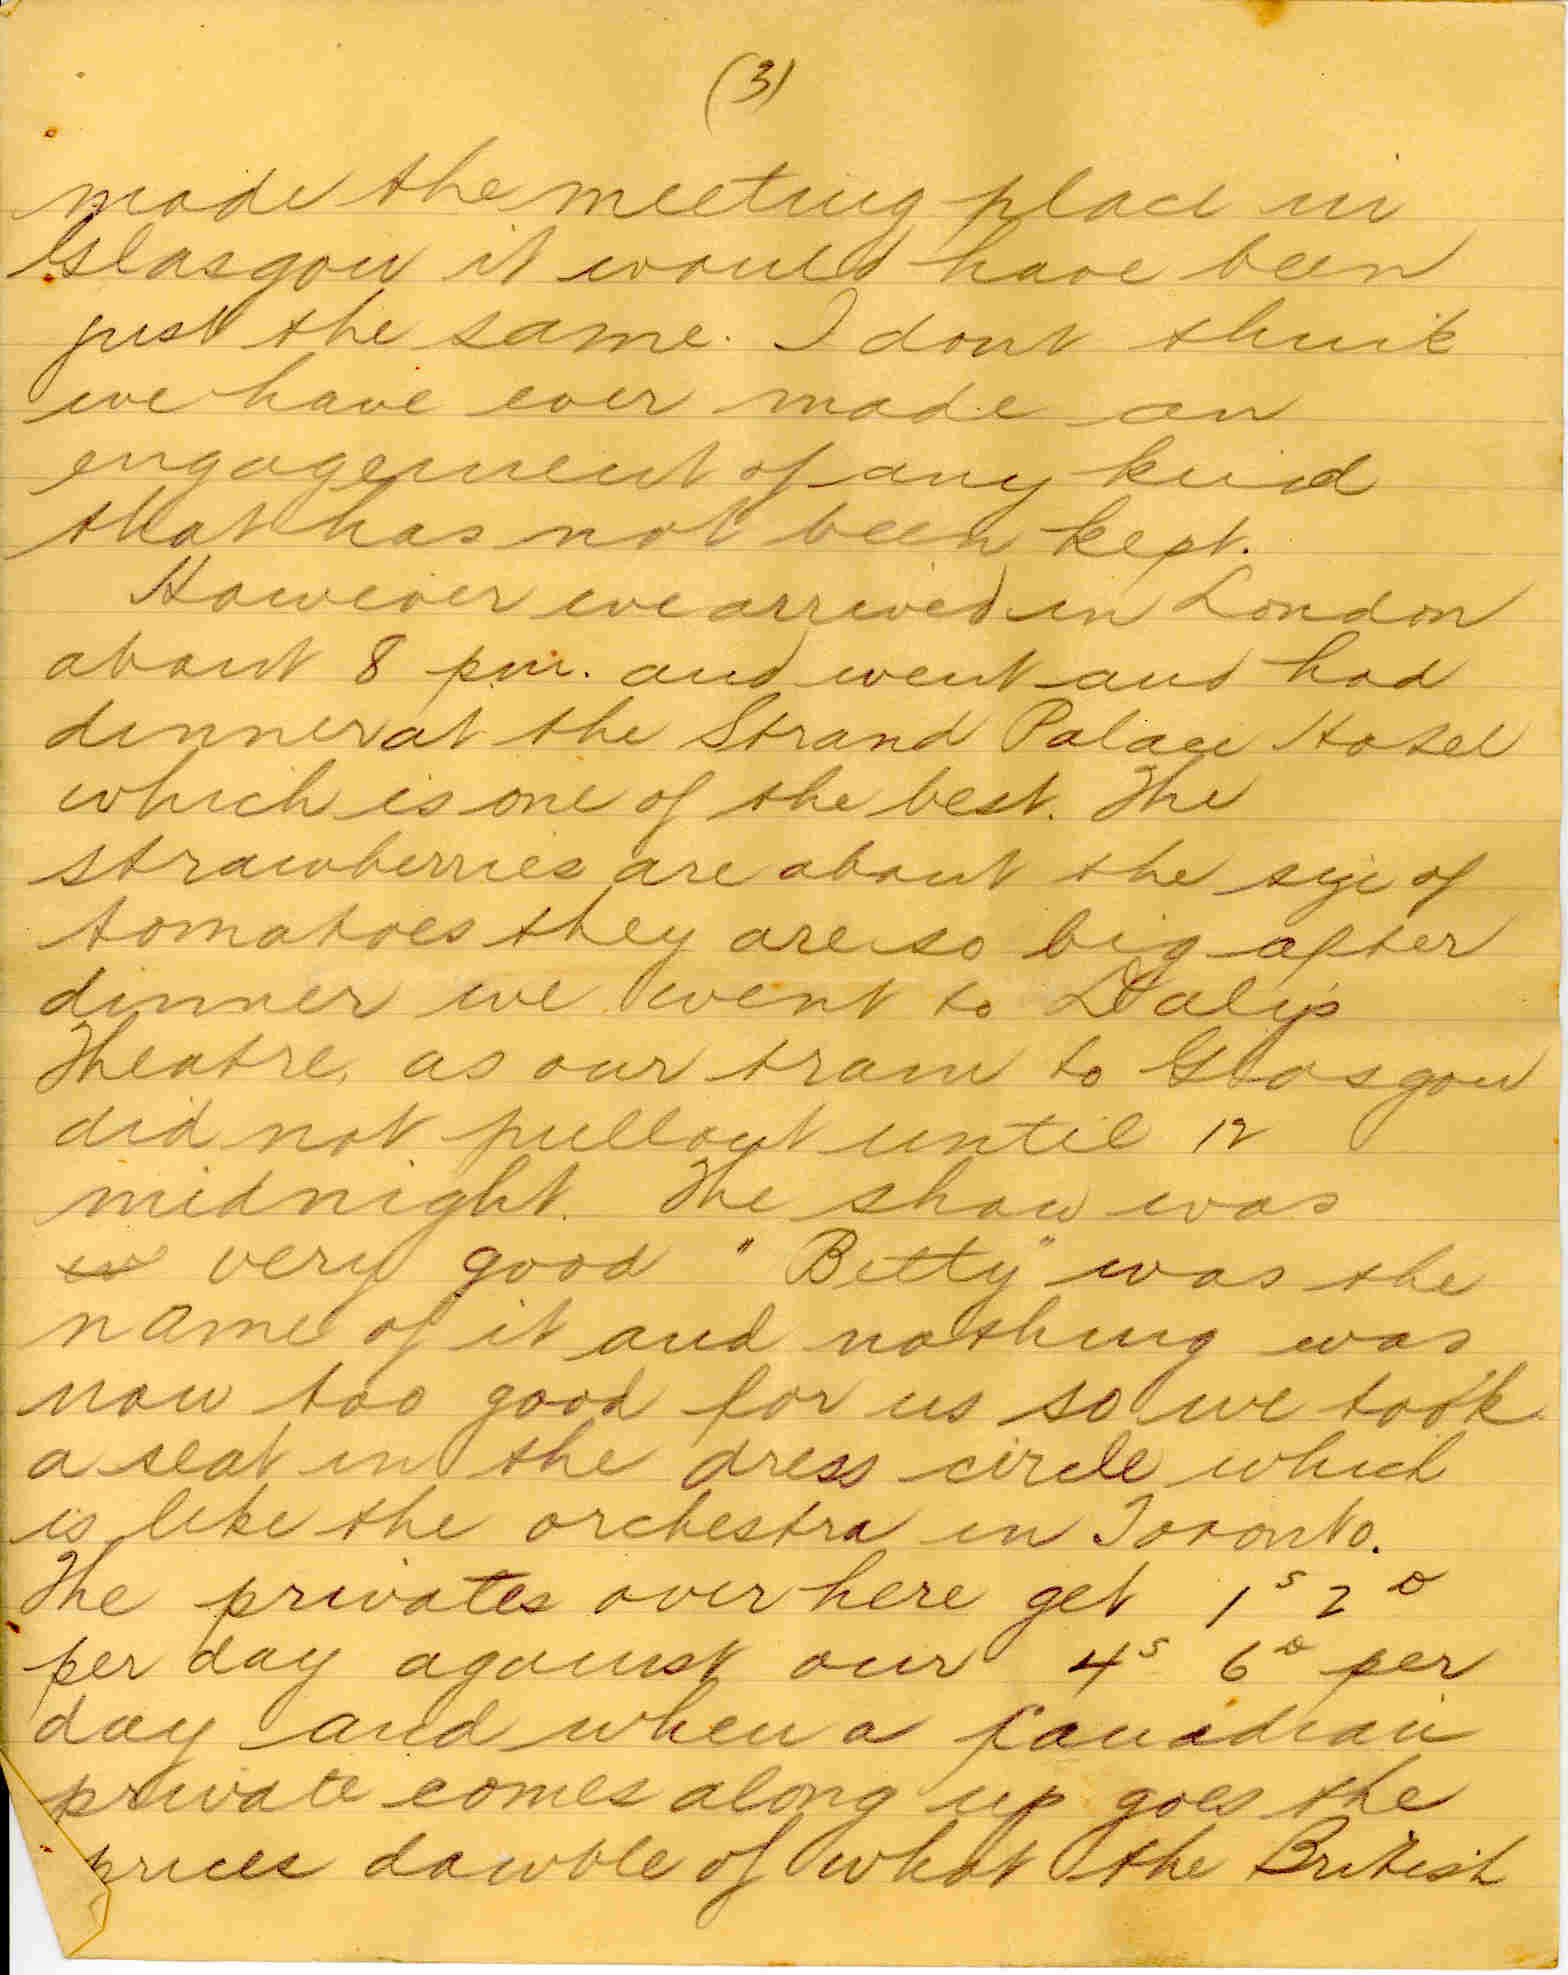 (3)
made the meeting place in
Glasgow it would have been
just the same. I dont think
we have ever made an
engagement of any kind
that has not been kept.
However we arrived in London
about 8 pm. and went and had
dinner at the Strand Palace Hotel
which is one of the best. The
strawberries are about the size of
tomatoes they are so big after
dinner we went to Daly's
Theatre, as our train to Glasgow
did not pull out until 12
midnight. The show was
very good "Betty" was the
name of it and nothing was
now too good for us so we took
a seat in the dress circle which
is like the orchestra in Toronto.
The privates over here get 1s 2d
per day against our 4s 6d per
day and when a Canadian
private comes along up goes the
prices dowble of what the British